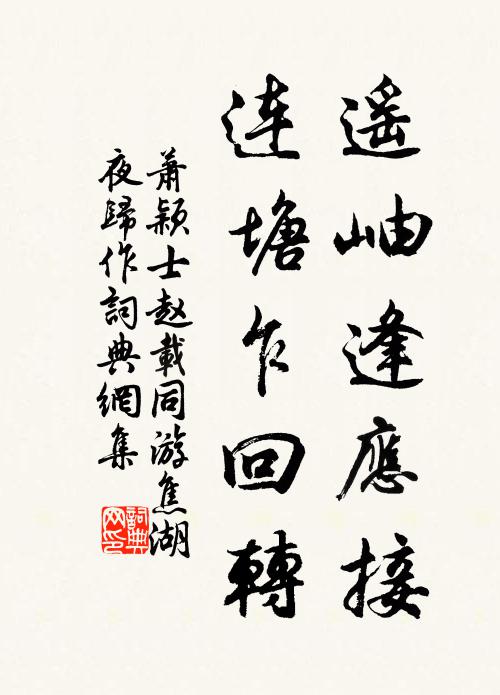 遥岫逢應接
連塘乍回轉
蕭颖士赵載同游焦湖
夜歸作詞典網集
詞典
网印